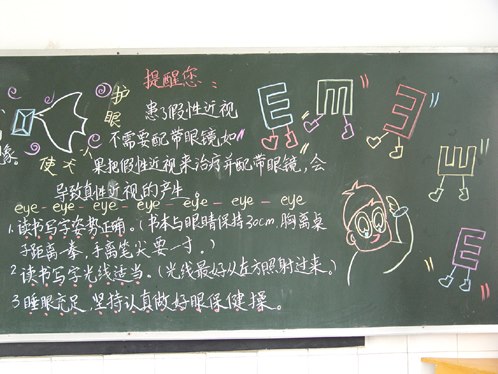 提醒您：
护眼
患了假性近视
不需要配带眼镜,如
果把假性近视来治疗并配带眼镜,会
导致真性近视的产生
eye-eye-eye-eye-eye-eye-eye
1.读书写字姿势正确。(书本与眼睛保持30cm,胸离桌
子距离一拳,手离笔尖要一寸。)
2.读书写字光线适当。(光线最好从左方照射过来。)
3.睡眠充足,坚持认真做好眼保健操。
E
E
E
E
E